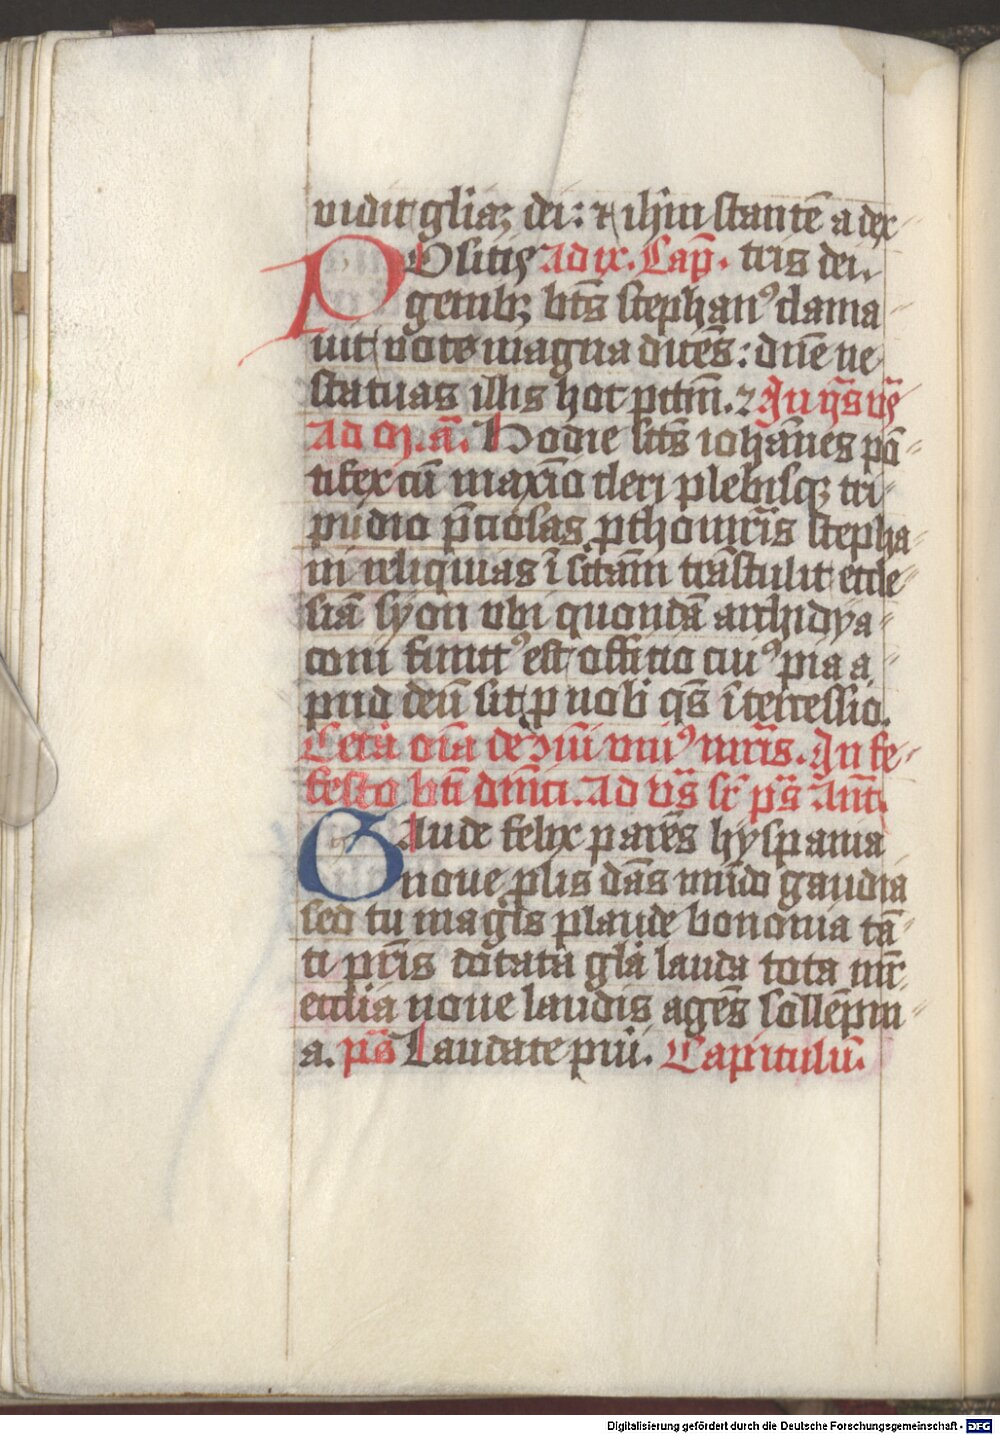 vidit gliaꝫ dei: ⁊ ihm stantē a dex
POsitis Ad ix. Cap̄. tris dei.
genibꝫ bt̄s stephan⁹ clama
uit voce magna dicēs: dn̄e ne
statuas illis hoc pctm̄. ⁊ In
Ad m̄. a. Hodie sct̄s iohānes pō
tifex cū maxīo cleri plebisqꝫ tri
pudio p̄ciosas ꝓthomr̄is stepha
ni reliquias ī sctām trāstulit eccle
siā syon vbi quondā archidya
coni funct⁹ est officio cui⁹ pia a
pud deū sit ꝓ nob̄ qs̄ ītercessio.
Cetā oīa de ꝯmūi vni⁹ mr̄is. In fe
festo bti dn̄ici. Ad vs̄ sr̄ ps̄ Ant̄
GAude felix parēs hyspania
noue ꝓlis dās mūdo gaudia
sed tu magis plaude bononia tā
ti pr̄is dotata glā lauda tota mr̄
ecclia noue laudis agēs sollēpni
a. ps̄ Laudate pui. Capitulū.
Digitalisierung gefördert durch die Deutsche Forschungsgemeinschaft - DFG